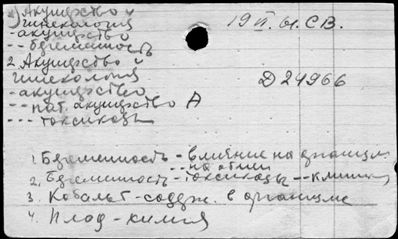 1) Акушерство и
гинекология
- акушерство
-- беременность
2. Акушерство и
гинекология
- акушерство
-- пат. акушерство А
--- токсикозы
19 II. 61. СВ.
Д 24966
1. Беременность - влияние на организм
-- на обмен
2. Беременность - токсикозы -- клиника
3. Кобальт - содерж. в организме
4. Плод - химия